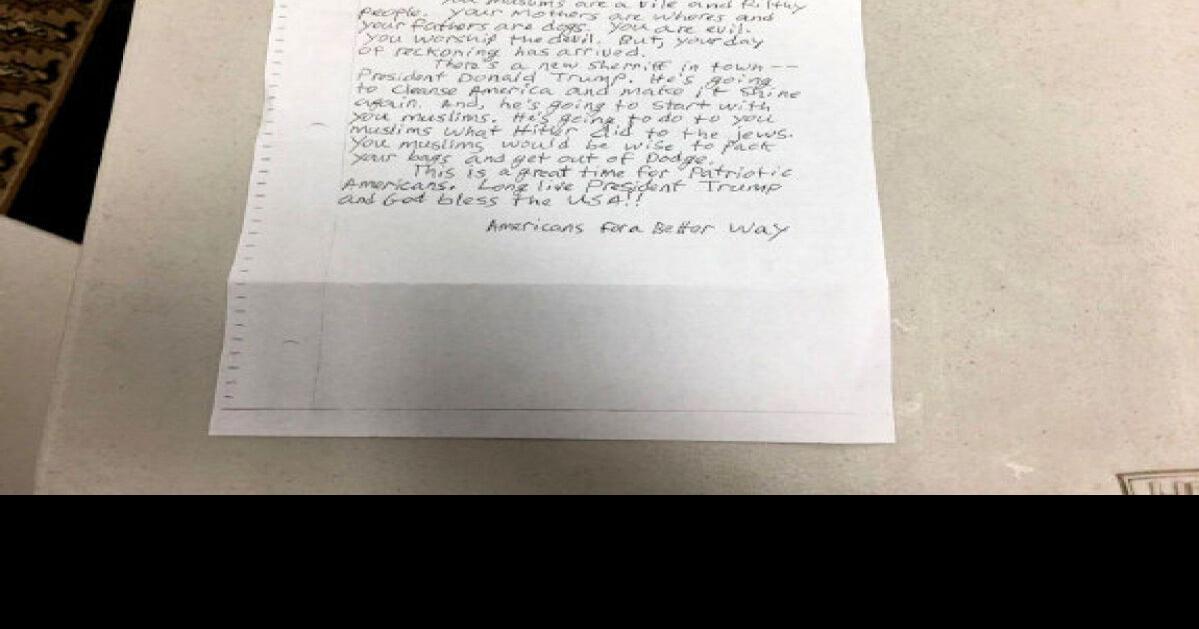 muslims are a vile and filthy
people. Your mothers are whores and
your fathers are dogs. You are evil.
You worship the devil. But, your day
of reckoning has arrived.
There's a new sherriff in town --
President Donald Trump. He's going
to cleanse America and make it shine
again. And, he's going to start with
you muslims. He's going to do to you
muslims what Hitler did to the jews.
You muslims would be wise to pack
your bags and get out of Dodge.
This is a great time for Patriotic
Americans. Long live President Trump
and God bless the USA!!
Americans for a Better Way